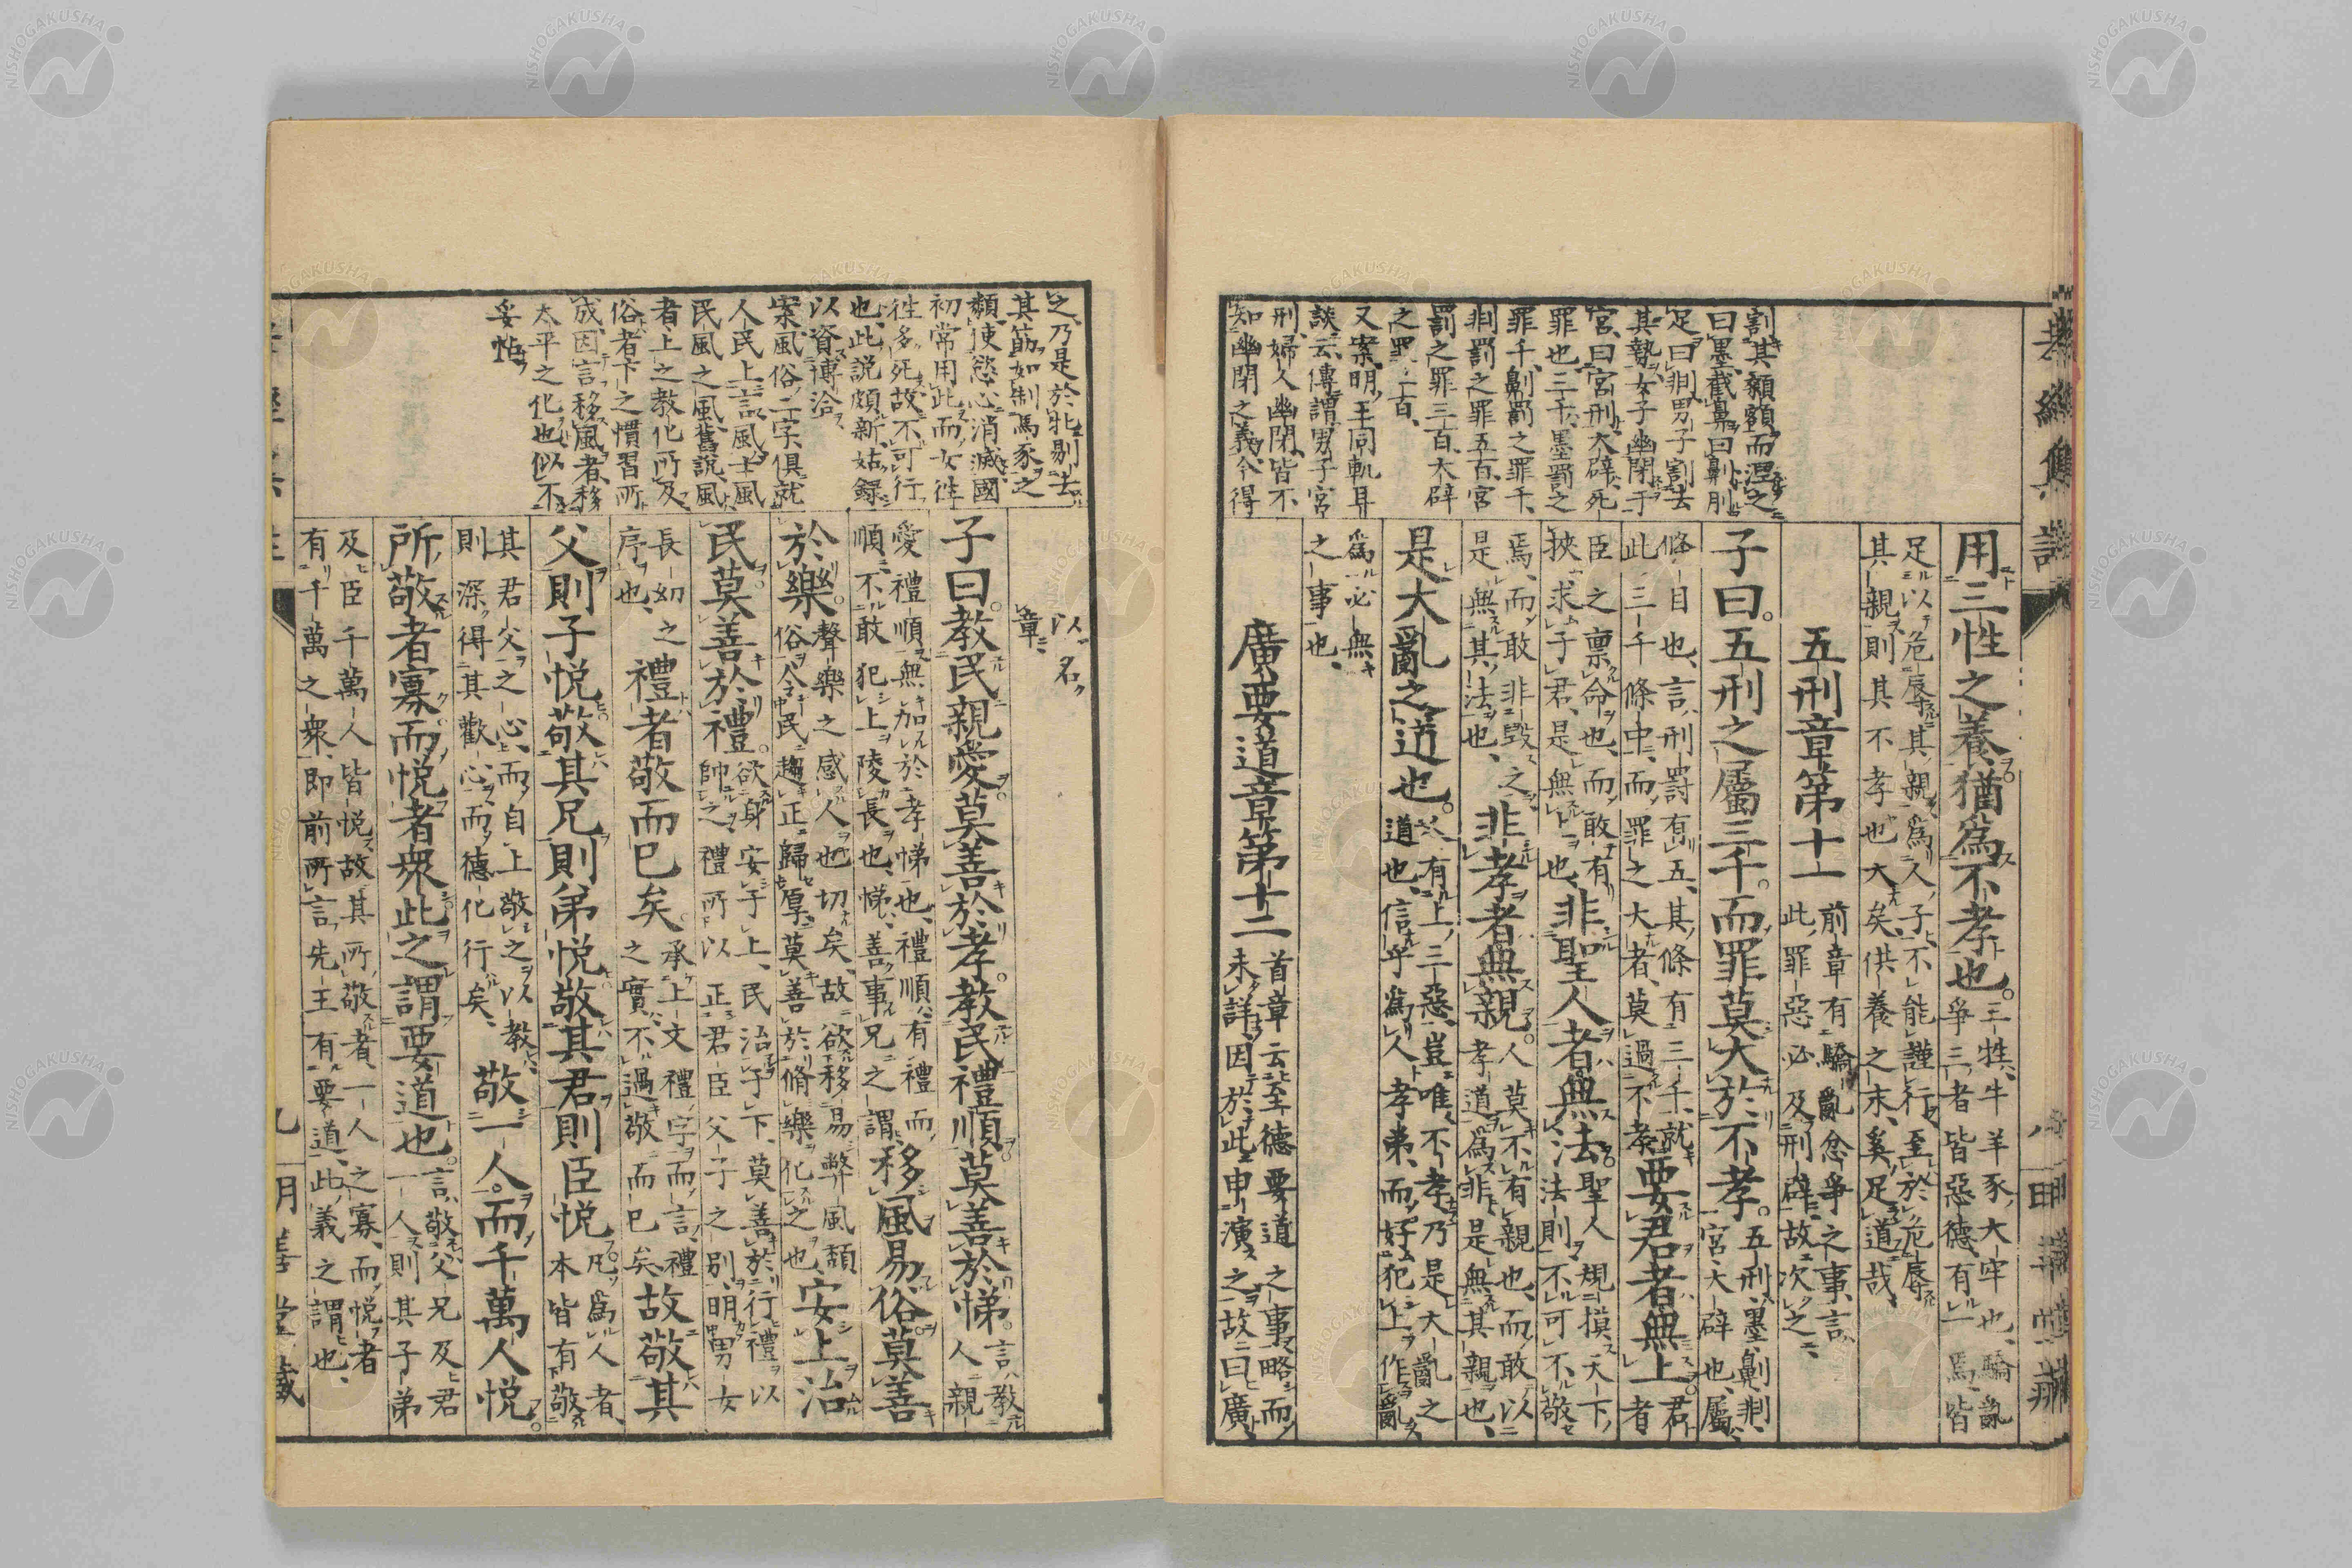 孝經集註
割其顙額而涅之
曰墨、截鼻曰劓、刖
足曰剕、男子割去
其勢、女子幽閉于
宮、曰宮刑、大辟、死
罪也、三千、墨罰之
罪千、劓罰之罪千、
剕罰之罪五百、宮
罰之罪三百、大辟
之罰二百、
又案、明、王同軌耳
談云、傳謂男子宮
刑、婦人幽閉、皆不
知幽閉之義、今得
用三牲之養、猶爲不孝也。
三牲、牛羊豕、大牢也、驕亂
爭三者皆惡德、有一焉、皆
足以危辱其親、爲人子、不能謹行、至於危辱
其親、則其不孝也大矣、供養之末、奚足道哉、
五刑章第十一
前章有驕亂忿爭之事、言
此罪惡必及刑辟、故次之、
子曰。五刑之屬三千。而罪莫大於不孝。
五刑、墨、劓、剕、
宮、大辟也、屬、
條目也、言刑罰有五、其條有三千、就
此三千條中、而罪之大者、莫過不孝、
要君者無上。
君者
臣之稟命也、而敢有
挾求于君、是無上也、
非聖人者無法。
聖人規摸天下、
法則不可不敬
焉、而敢非毀之、
是無其法也、
非孝者無親。
人莫不有親也、而敢以
孝道爲非、是無其親也、
是大亂之道也。
有上三惡、豈唯不孝、乃是大亂之
道也、信乎爲人孝弟、而好犯上作亂
爲必無
之事也、
廣要道章第十二
首章云至德要道之事、略而
未詳、因於此申演之、故曰廣
之、乃是於牝剔去
其筋、如制馬豕之
類、使慾心消滅、國
初常用此、而女往
往多死、故不可行
也、此說頗新、姑録
以資博洽、
案風俗、二字俱就
人民上言、風、士風
民風之風、舊說、風
者、上之教化所及
俗者、下之慣習所
成、因言移風者、移
太平之化也、似不
妥帖、
以名
章、
子曰。教民親愛。莫善於孝。教民禮順。莫善於悌。
言教
人親
愛禮順、無加於孝悌也、禮順、有禮而
順、不敢犯上陵長也、悌、善事兄之謂、
移風易俗。莫善
於樂。
聲樂之感人也切矣、故欲移易弊風頹
俗、令民趨正歸厚、莫善於脩樂化之也、
安上治
民。莫善於禮。
欲身安于上、民治于下、莫善於行禮以
帥之、禮所以正君臣父子之別、明男女
長幼之
序也、
禮者敬而已矣。
承上文禮字而言、禮
之實、不過敬而已矣、
故敬其
父則子悅。敬其兄則弟悅。敬其君則臣悅。
凡爲人者、
本皆有敬
其君父之心、而自上敬之以教、
則深得其歡心、而德化行矣、
敬一人。而千萬人悅。
所敬者寡。而悅者衆。此之謂要道也。
言敬父兄及君
一人、則其子弟
及臣千萬人皆悅、故其所敬者、一人之寡、而悅者
有千萬之衆、即前所言、先王有要道、此義之謂也、